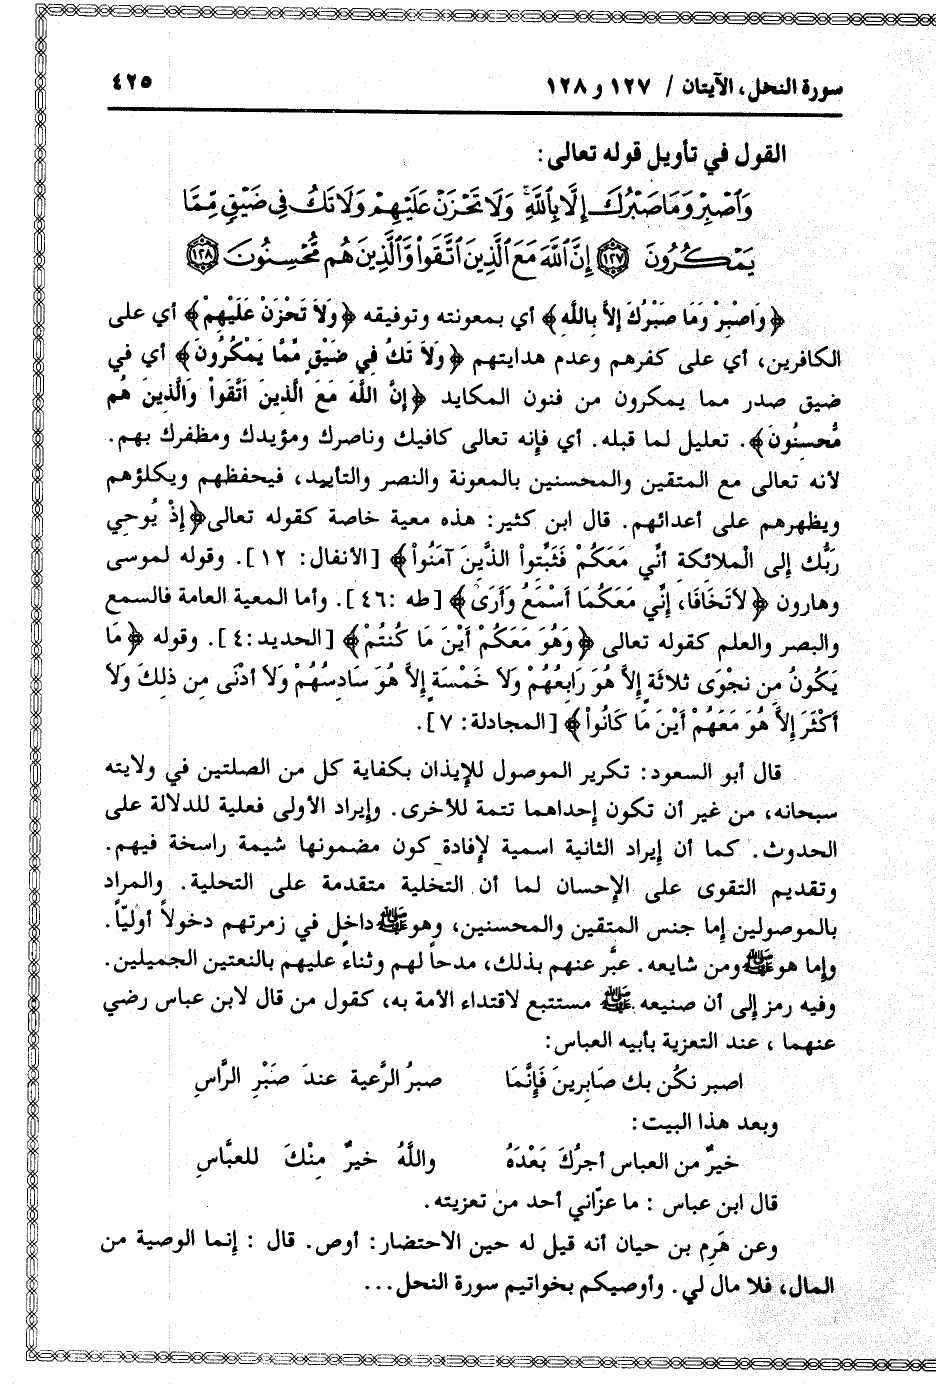 سورة النحل، الآيتان / ١٢٧ و ١٢٨
٤٢٥
القول في تأويل قوله تعالى:
وَٱصْبِرْ وَمَا صَبْرُكَ إِلَّا بِٱللَّهِ وَلَا تَحْزَنْ عَلَيْهِمْ وَلَا تَكُ فِى ضَيْقٍ مِّمَّا
يَمْكُرُونَ ١٢٧ إِنَّ ٱللَّهَ مَعَ ٱلَّذِينَ ٱتَّقَوا۟ وَّٱلَّذِينَ هُم مُّحْسِنُونَ ١٢٨
﴿وَاصْبِرْ وَمَا صَبْرُكَ إلاَّ بِاللَّهِ﴾ أي بمعونته وتوفيقه ﴿وَلاَ تَحْزَنْ عَلَيْهِمْ﴾ أي على
الكافرين، أي على كفرهم وعدم هدايتهم ﴿وَلاَ تَكُ فِي ضَيْقٍ مِّمَّا يَمْكُرُونَ﴾ أي في
ضيق صدر مما يمكرون من فنون المكايد ﴿إنَّ اللَّهَ مَعَ الَّذِينَ اتَّقَواْ وَالَّذِينَ هُم
مُّحسِنُونَ﴾. تعليل لما قبله. أي فإنه تعالى كافيك وناصرك ومؤيدك ومظفرك بهم.
لأنه تعالى مع المتقين والمحسنين بالمعونة والنصر والتأييد، فيحفظهم ويكلؤهم
ويظهرهم على أعدائهم. قال ابن كثير: هذه معية خاصة كقوله تعالى﴿إذْ يُوحِي
رَبُّكَ إلى الْملائكةِ أنِّي مَعَكُمْ فَثَبِّتوا الذَّينَ آمَنُوا﴾ [الأنفال: ١٢]. وقوله لموسى
وهارون ﴿لاَتَخَافَا، إنِّي مَعَكُمَا أسْمَعُ وَأرَىٰ﴾ [طه :٤٦]. وأما المعية العامة فالسمع
والبصر والعلم كقوله تعالى ﴿وَهُوَ مَعَكُمْ أيْنَ مَا كُنتُمْ﴾ [الحديد:٤]. وقوله ﴿مَا
يَكُونُ مِن نجْوَى ثَلاثَةٍ إلاَّ هُوَ رَابِعُهُمْ وَلاَ خَمْسَةٍ إلاَّ هُوَ سَادِسُهُمْ وَلاَ أدْنَى مِن ذلِكَ وَلاَ
أكْثَرَ إلاَّ هُوَ مَعَهُمْ أيْنَ مَا كَانُوا﴾ [المجادلة: ٧].
قال أبو السعود: تكرير الموصول للإيذان بكفاية كل من الصلتين في ولايته
سبحانه، من غير أن تكون إحداهما تتمة للأخرى. وإيراد الأولى فعلية للدلالة على
الحدوث. كما أن إيراد الثانية اسمية لإفادة كون مضمونها شيمة راسخة فيهم.
وتقديم التقوى على الإحسان لما أن التخلية متقدمة على التحلية. والمراد
بالموصولين إما جنس المتقين والمحسنين، وهوﷺداخل في زمرتهم دخولاً أوليّاً.
وإما هوﷺومن شايعه. عبَّر عنهم بذلك، مدحاً لهم وثناء عليهم بالنعتين الجميلين.
وفيه رمز إلى أن صنيعه ﷺ مستتبع لاقتداء الأمة به، كقول من قال لابن عباس رضي
عنهما ، عند التعزية بأبيه العباس:
اصبر نكُن بك صَابِرينَ فَإنَّمَا صبرُ الرَّعية عندَ صَبْرِ الرَّاسِ
وبعد هذا البيت:
خيرٌ من العباس أجرُكَ بَعْدَهُ واللَّهُ خيرٌ مِنْكَ للعبَّاسِ
قال ابن عباس : ما عزّاني أحد من تعزيته.
وعن هَرِم بن حيان أنه قيل له حين الاحتضار: أوص. قال : إنما الوصية من
المال، فلا مال لي. وأوصيكم بخواتيم سورة النحل...